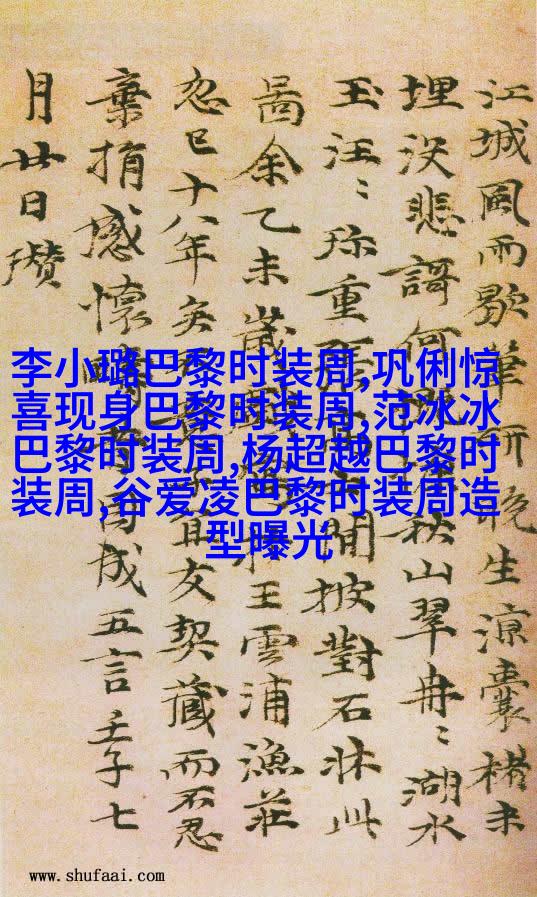 李小璐巴黎时装周,巩俐惊
喜现身巴黎时装周,范冰冰
巴黎时装周,杨超越巴黎时
装周,谷爱凌巴黎时装周造
型曝光
江城風雨歇筆研晚生涼囊楮未
埋没悲謌何秋山翠冉〻湖水
玉汪〻珍重閒披對石牀此
啚余乙未歲王雲浦漁莊
忽已十八年矣友契藏而不忍
棄捐感懷因成五言壬子七
月廿日瓚
www.shufaai.com